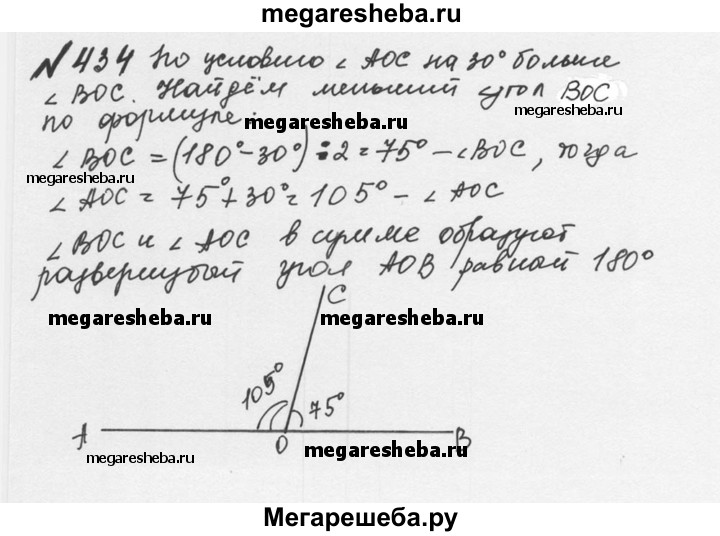 megaresheba.ru
№434 По условию ∠ AOC на 30° больше
∠ BOC. Найдём меньший угол BOC
megaresheba.ru
по формуле:
megaresheba.ru
∠ BOC = (180°-30°) : 2 = 75° - ∠BOC, тогда
megaresheba.ru
∠ AOC = 75°+30°= 105° - ∠ AOC
∠ BOC и ∠ AOC в сумме образуют
развернутый угол AOB равной 180°
C
megaresheba.ru
megaresheba.ru
105°
75°
A
O
B
megaresheba.ru
megaresheba.ru
Мегарешеба.ру